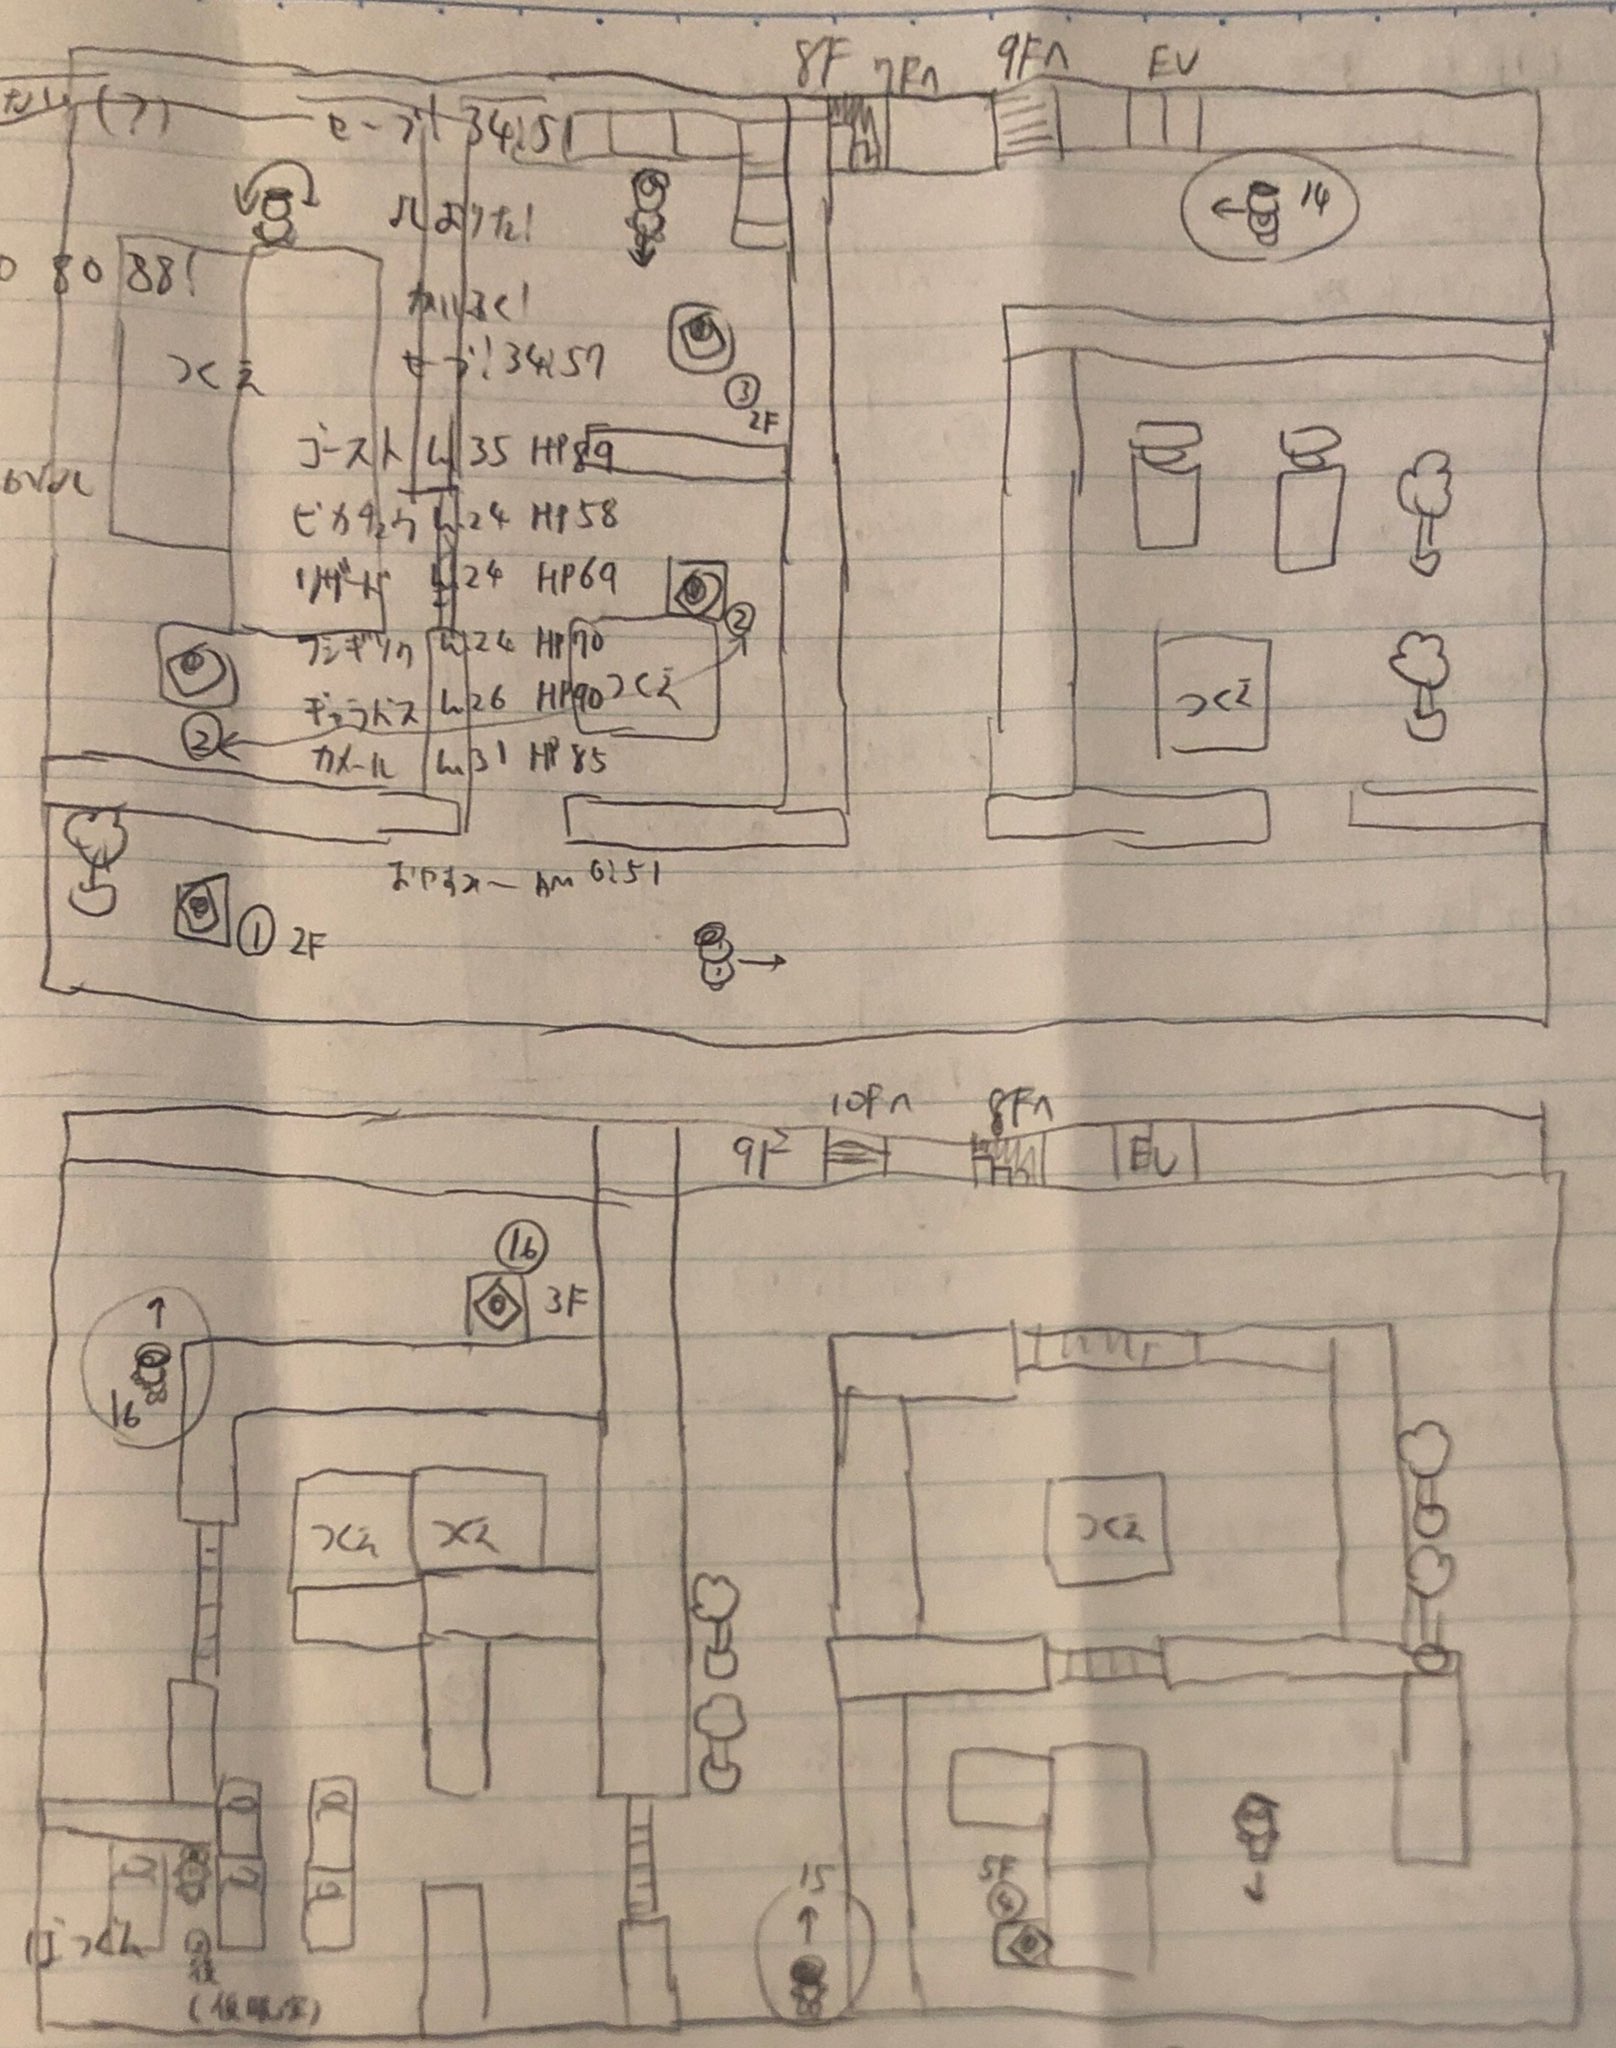 8F 7Fへ 9Fへ EV
(?)
セーブ! 34:51
14
80 88!
かいふく!
つくえ
セーブ! 34:57
③
2F
ゴースト Lv35 HP89
ピカチュウ Lv24 HP58
リザード Lv24 HP69
②
フシギソウ Lv24 HP70
つくえ
つくえ
ギャラドス Lv26 HP90
②
カメール Lv31 HP85
おやすみー AM 6:51
① 2F
10Fへ 8Fへ
9F EV
16
3F
16
つくえ つくえ
つくえ
15
5F
④